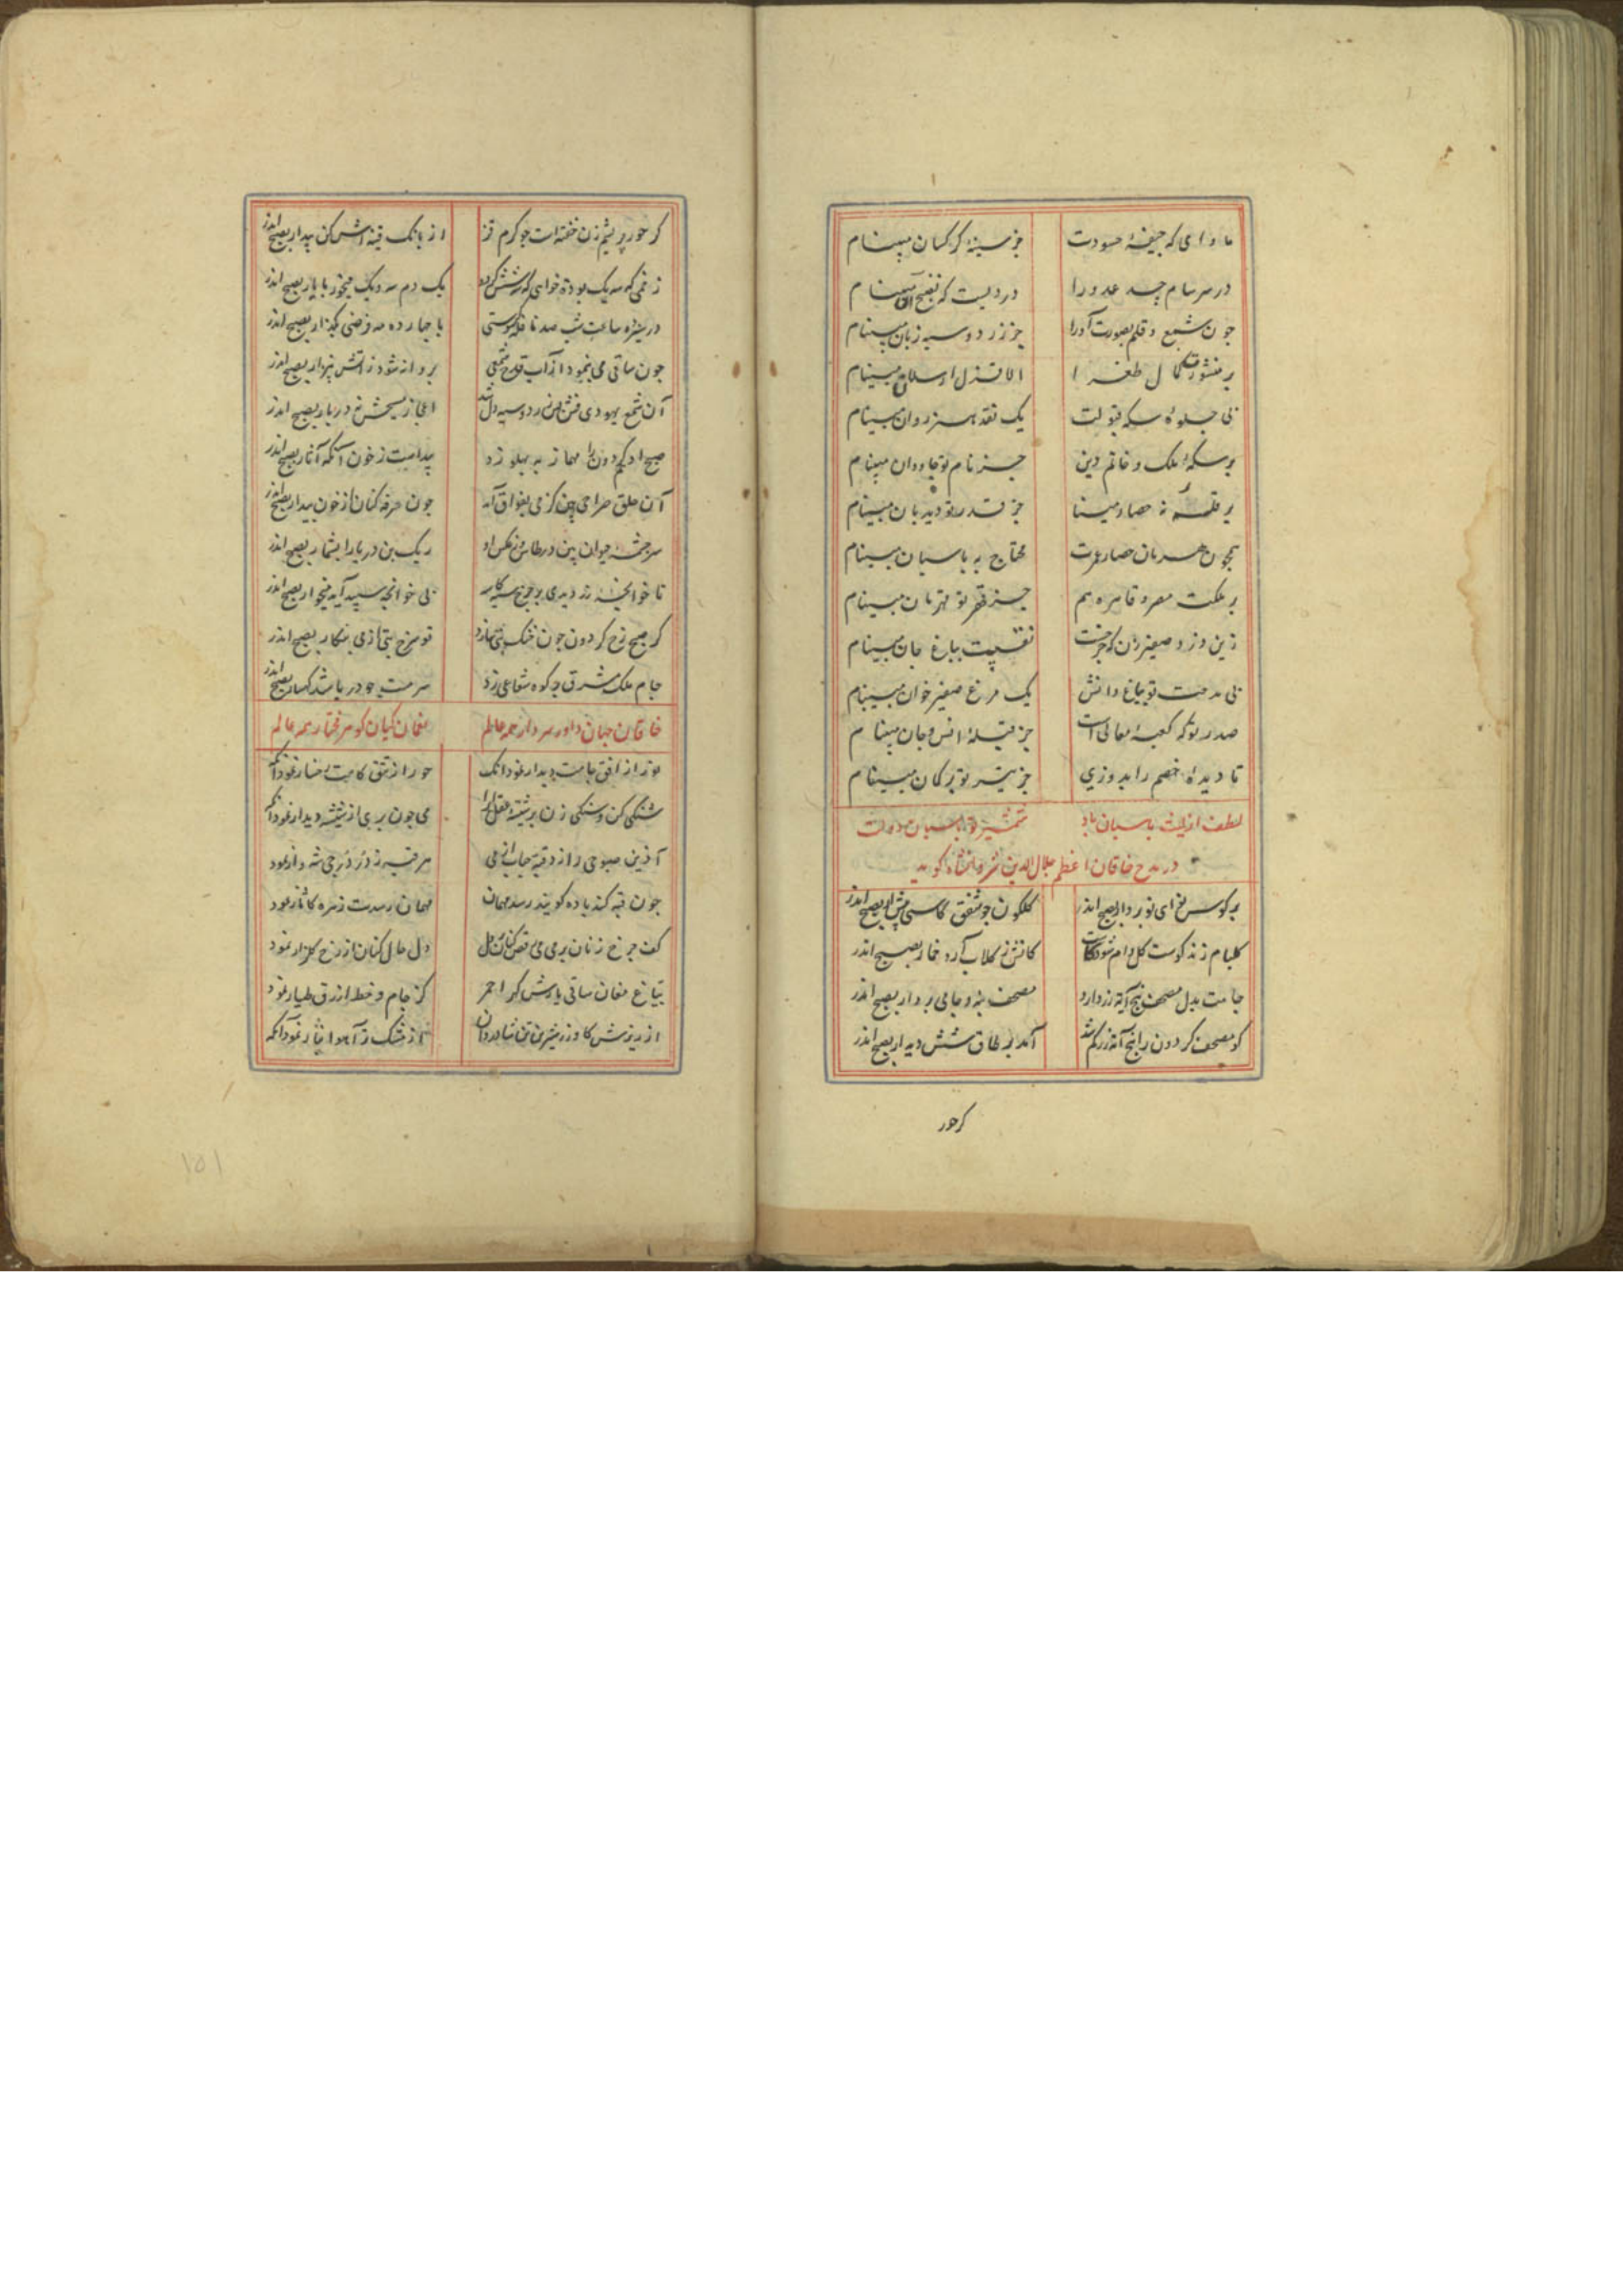 ماوای که جیفهٔ حسودت جز سینهٔ کرکسان مبینام
در سرسام حسد عدو را دردیست که نضج آن مبینام
چون شمع و قلم بصورت او را جز زرد و سیه زبان مبینام
بر منشور کمال طغرا الا قزل ارسلان مبینام
بی جلوهٔ سکه قبولت یک نقد هنر روان مبینام
بر سکهٔ ملک و خاتم دین جز نام تو جاودان مبینام
بر قلعه نه حصار مینا جز قدر تو دیدبان مبینام
همچون هرمان حصار عمرت محتاج به پاسبان مبینام
بر مملکت مصر و قاهره هم جز قهر تو قهرمان مبینام
زین دزد صفیرزن که چرخست نقبیت بباغ جان مبینام
بی مدحت تو بباغ دانش یک مرغ صفیر خوان مبینام
صدر تو که کعبهٔ معالی است جز قبلهٔ انس و جان مبینام
تا دیدهٔ خصم را بدوزی جز تیر تو بر کمان مبینام
لطف ازلیت پاسبان باد شمشیر تو پاسبان دولت
در مدح خاقان اعظم جلال الدین شروانشاه کوید
کلکون چو شفق کاسی پیش آر بصبح اندر
کلبام زند کوست کل وام شود کاست کاتش ز کلاب آرد خمار بصبح اندر
جامت بدل مصحف پنج آیه زر دارد مصحف بنه و جامی بردار بصبح اندر
کو مصحف کردون را پنج آیه زر کم شد آمد بر طاق شش دیدار بصبح اندر
کر حور
کر حور بریشم زن خفته است چو کرم قز از بانک قنینه اش کن بیدار بصبح اندر
یک دم سه و یک میخور با یار بصبح اندر
در سیزده ساعت شب صد نافله کردستی با چهارده مه فرضی بکذار بصبح اندر
چون ساقی می بنمود از آب قدح شمعی پروانه شود زآتش بیزار بصبح اندر
آن شمع یهودی فش زرد و سیه دل شد اعجاز مسیحش نه در بار بصبح اندر
صبح ادکم کردون را مهماز به پهلو زد پیداست ز خون اسکه آثار بصبح اندر
آن حلق صراحی بین کز می بفواق آمد چون سرفه کنان از خون بیمار بصبح اندر
سرچشمه حیوان بین در طاس من و عکس او ریک بن دریا را بشمار بصبح اندر
تا خوانچه زر دیدی بر چرخ سیه کاسه بی خوانچه سپید آید میخوار بصبح اندر
کر صبح رخ کردون چون خنک بتی سازد تو سرخ بتی از می بنکار بصبح اندر
جام ملک مشرق بر کوه شعاعی زد سر مست چو دریا شد کهسار بصبح اندر
خاقان جهان داور سردار همه عالم نعمان کیان کوهر مختار همه عالم
نوروز از افق جامت دیدار نمود آنک حور از تتق کاست رخسار نمود آنک
شنکی کن و سنکی زن بر شیشهٔ عقل ایرا می چون پری از شیشه دیدار نمود آنک
هر قبه ز در درجی شهوار نمود
چون قبه کند باده کویند رسد مهمان مهمان رسدت زهره کآثار نمود
کف چرخ زنان بر می می رقص کنان بر دل دل خال کنان از رخ کلزار نمود
بتباغ مغان ساقی کز جام و خط ازرق طیار نمود
از خشک ز آهوا نمود آنک